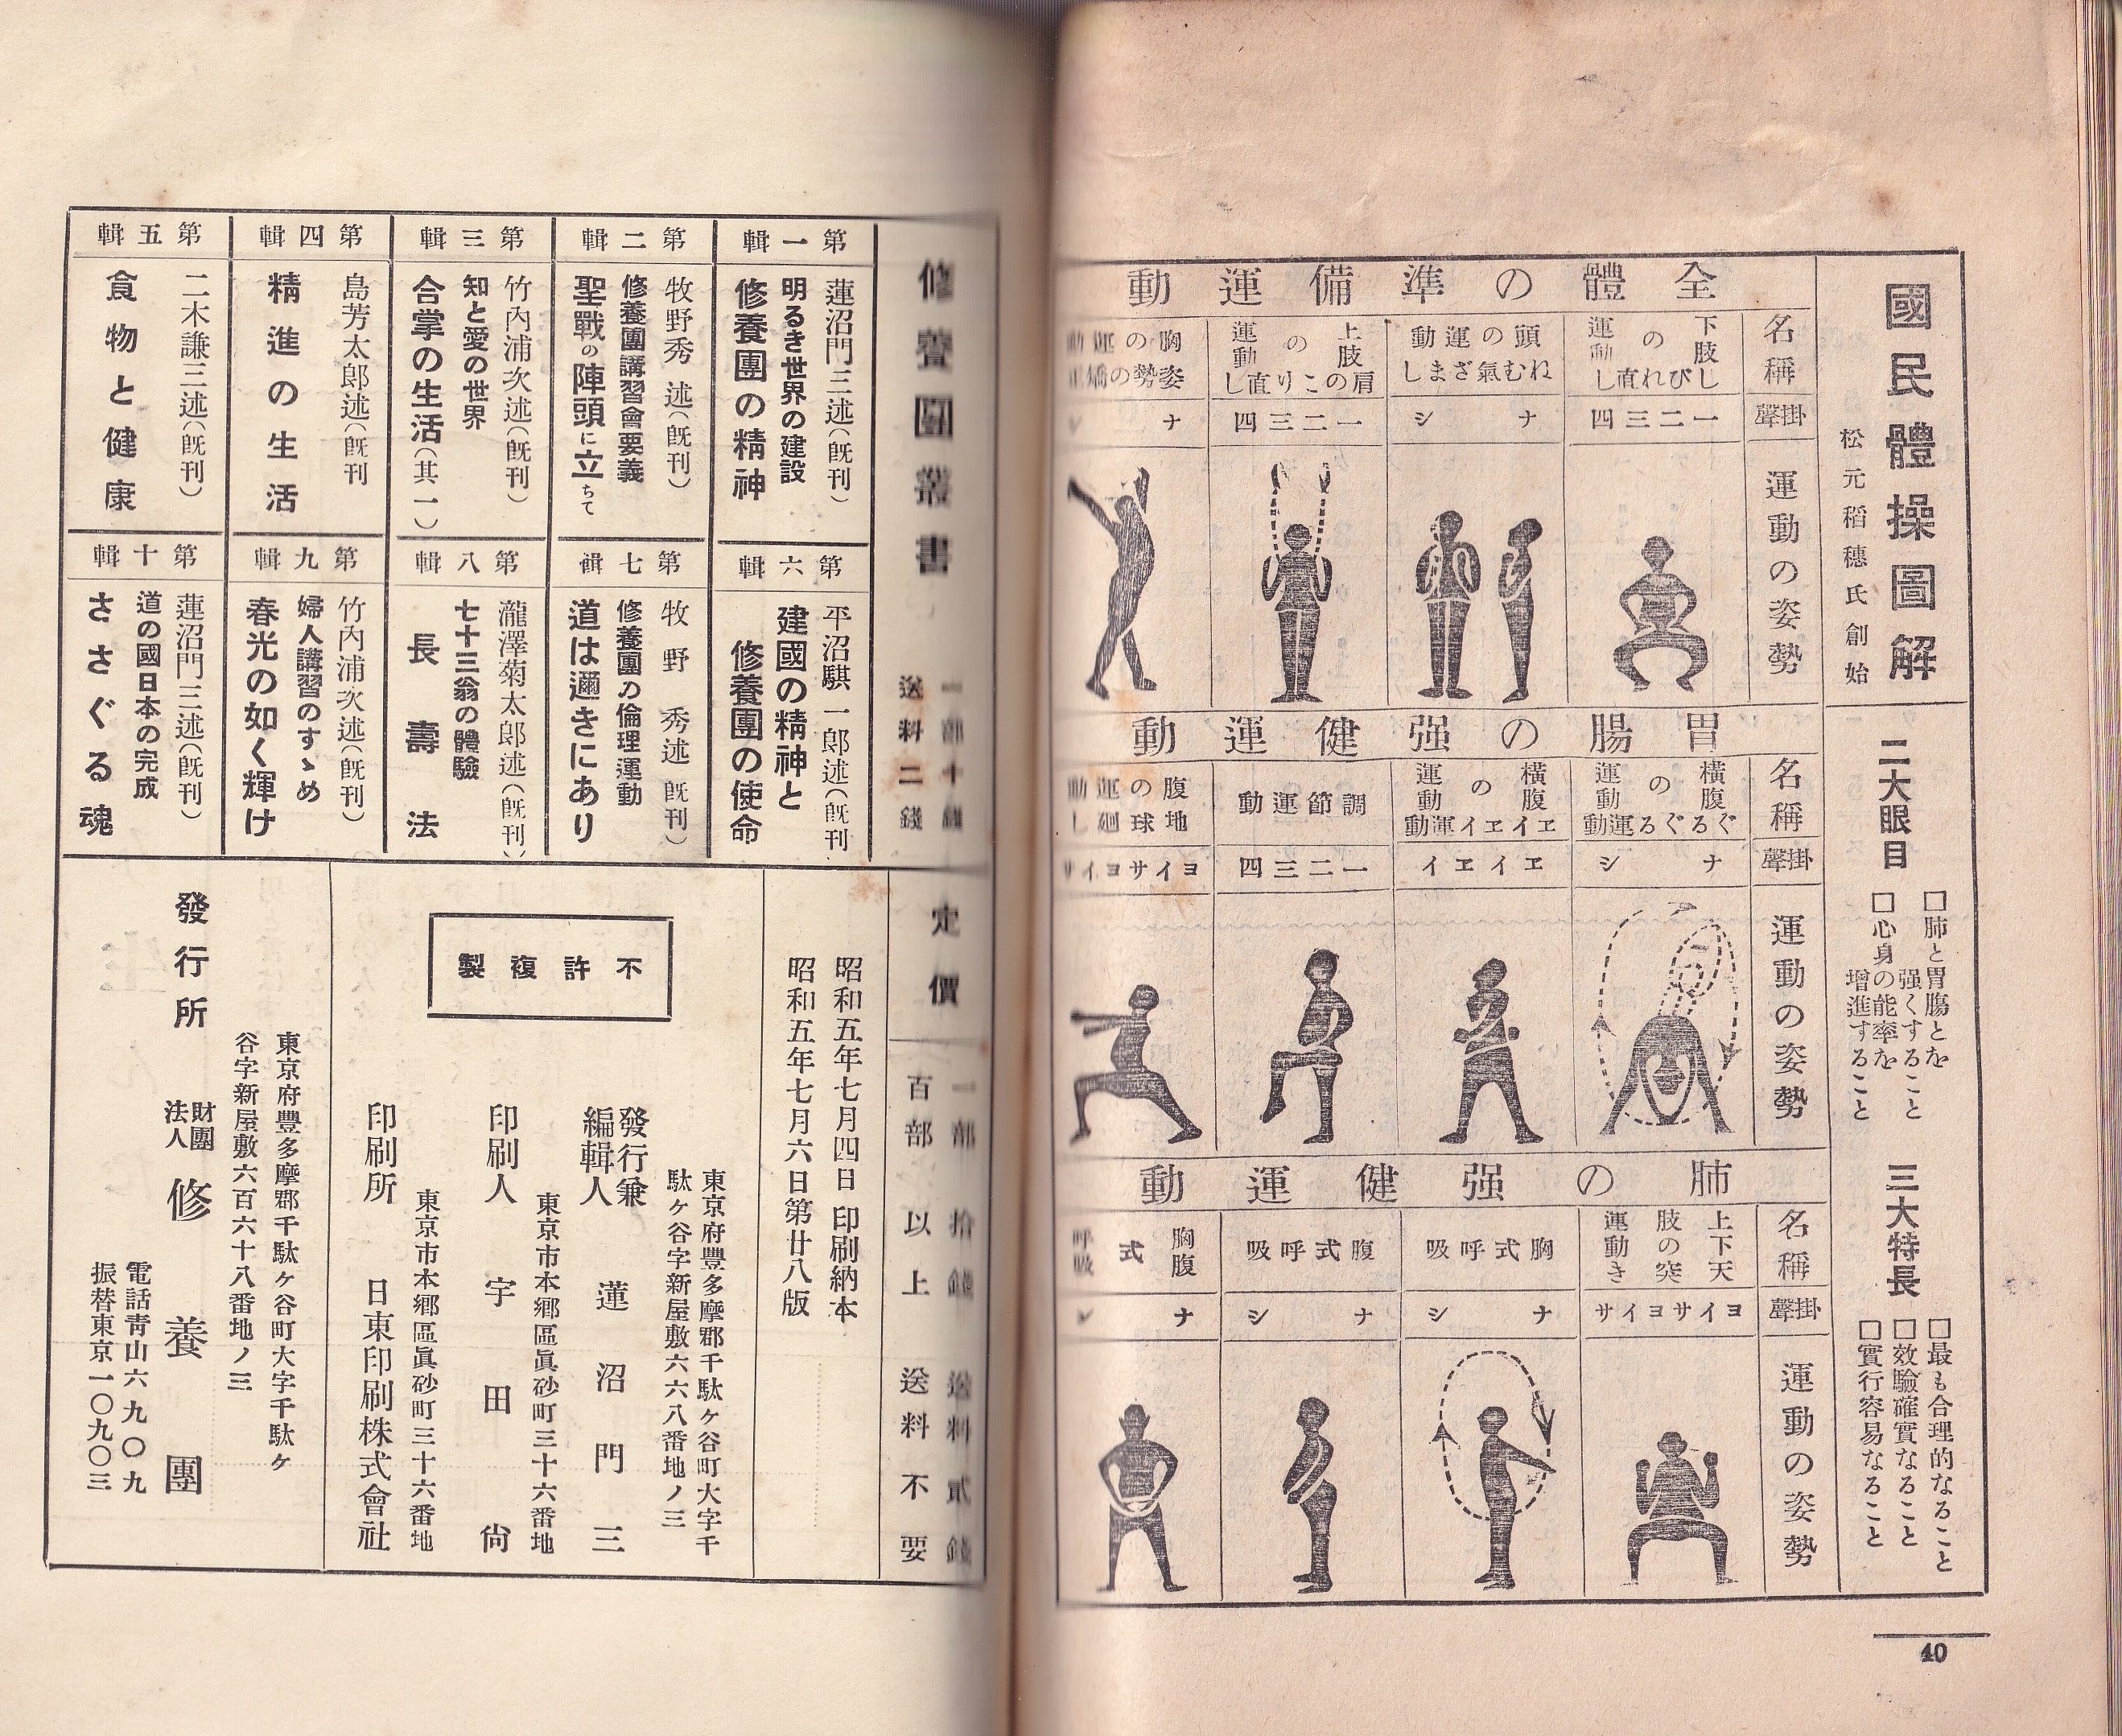 國民體操圖解
松元稻穗氏創始
二大眼目
□肺と胃膓とを
强くすること
□心身の能率を
增進すること
三大特長
□最も合理的なること
□效驗確實なること
□實行容易なること
全體の準備運動
名稱
掛聲
運動の姿勢
下肢の運動
しびれ直し
一二三四
頭の運動
ねむ氣ざまし
ナシ
上肢の運動
肩のこり直し
一二三四
胸の運動
姿勢の矯正
ナシ
胃腸の强健運動
名稱
掛聲
運動の姿勢
橫腹の運動
ぐるぐる運動
ナシ
橫腹の運動
エイエイ運動
エイエイ
調節運動
一二三四
腹の運動
地球廻し
ヨイサヨイサ
肺の强健運動
名稱
掛聲
運動の姿勢
上下肢の運動
天突き
ヨイサヨイサ
胸式呼吸
ナシ
腹式呼吸
ナシ
胸腹式呼吸
ナシ
40
修養團叢書
一部十錢
送料二錢
第一輯
蓮沼門三述(旣刊)
明るき世界の建設
修養團の精神
第二輯
牧野秀 述(旣刊)
修養團講習會要義
聖戰の陣頭に立ちて
第三輯
竹內浦次述(旣刊)
知と愛の世界
合掌の生活(其一)
第四輯
島芳太郎述(旣刊
精進の生活
第五輯
二木謙三述(旣刊)
食物と健康
第六輯
平沼騏一郎述(旣刊
建國の精神と
修養團の使命
第七輯
牧野 秀述 旣刊)
修養團の倫理運動
道は邇きにあり
第八輯
瀧澤菊太郎述(旣刊)
七十三翁の體驗
長壽法
第九輯
竹內浦次述(旣刊)
婦人講習のすゝめ
春光の如く輝け
第十輯
蓮沼門三述(旣刊)
道の國日本の完成
ささぐる魂
定價
一部 拾錢 送料貳錢
百部以上 送料不要
昭和五年七月四日 印刷納本
昭和五年七月六日第廿八版
不許複製
東京府豐多摩郡千駄ケ谷町大字千
駄ケ谷字新屋敷六六八番地ノ三
發行兼
編輯人
蓮沼門三
東京市本鄕區眞砂町三十六番地
印刷人 宇田尙
東京市本鄕區眞砂町三十六番地
印刷所 日東印刷株式會社
東京府豐多摩郡千駄ケ谷町大字千駄ケ
谷字新屋敷六百六十八番地ノ三
發行所
財團
法人
修養團
電話靑山六九〇九
振替東京一〇九〇三